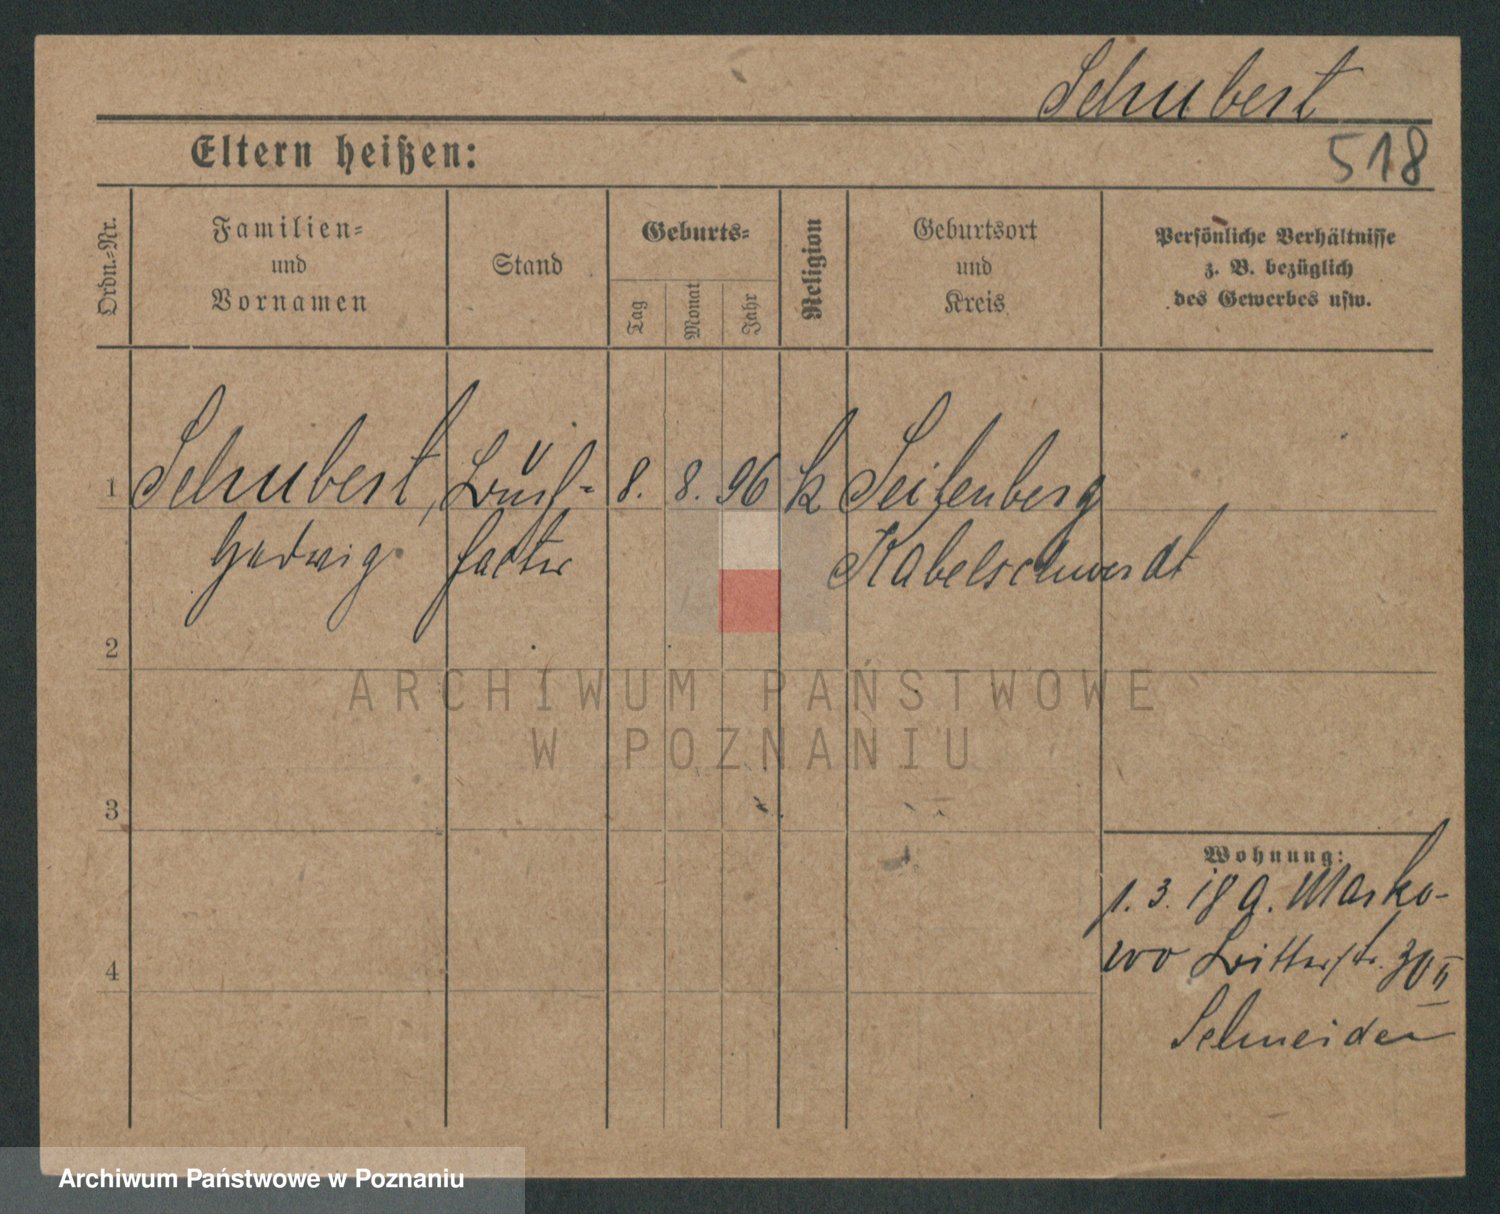 Schubert
518
Eltern heißen:
Ordn.-Nr.
Familien-
und
Vornamen
Stand
Geburts-
Tag
Monat
Jahr
Religion
Geburtsort
und
Kreis
Persönliche Verhältnisse
z. B. bezüglich
des Gewerbes usw.
1 Schubert, 8. 8. 96 k Seitenberg
Hedwig Habelschwerdt
2
ARCHIWUM PAŃSTWOWE
W POZNANIU
3
4
Wohnung:
1. 3. 18 a. Marko-
wo Ritterstr. 30 II
Schneider
Archiwum Państwowe w Poznaniu